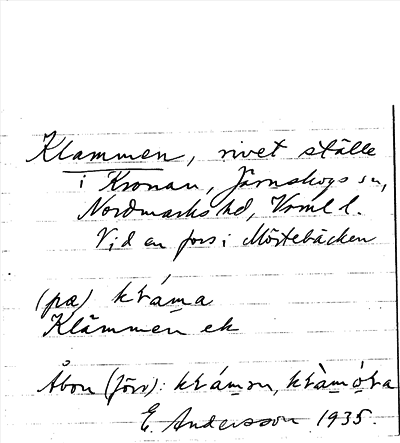 Klammen, rivet ställe
i Kronan, Järnskogs sn,
Nordmarks hd, Vrml l.
Vid en fors i Mörtebäcken
(pæ) kláma
Klämmen ek
Åbon (förr): E. Andersson 1935.